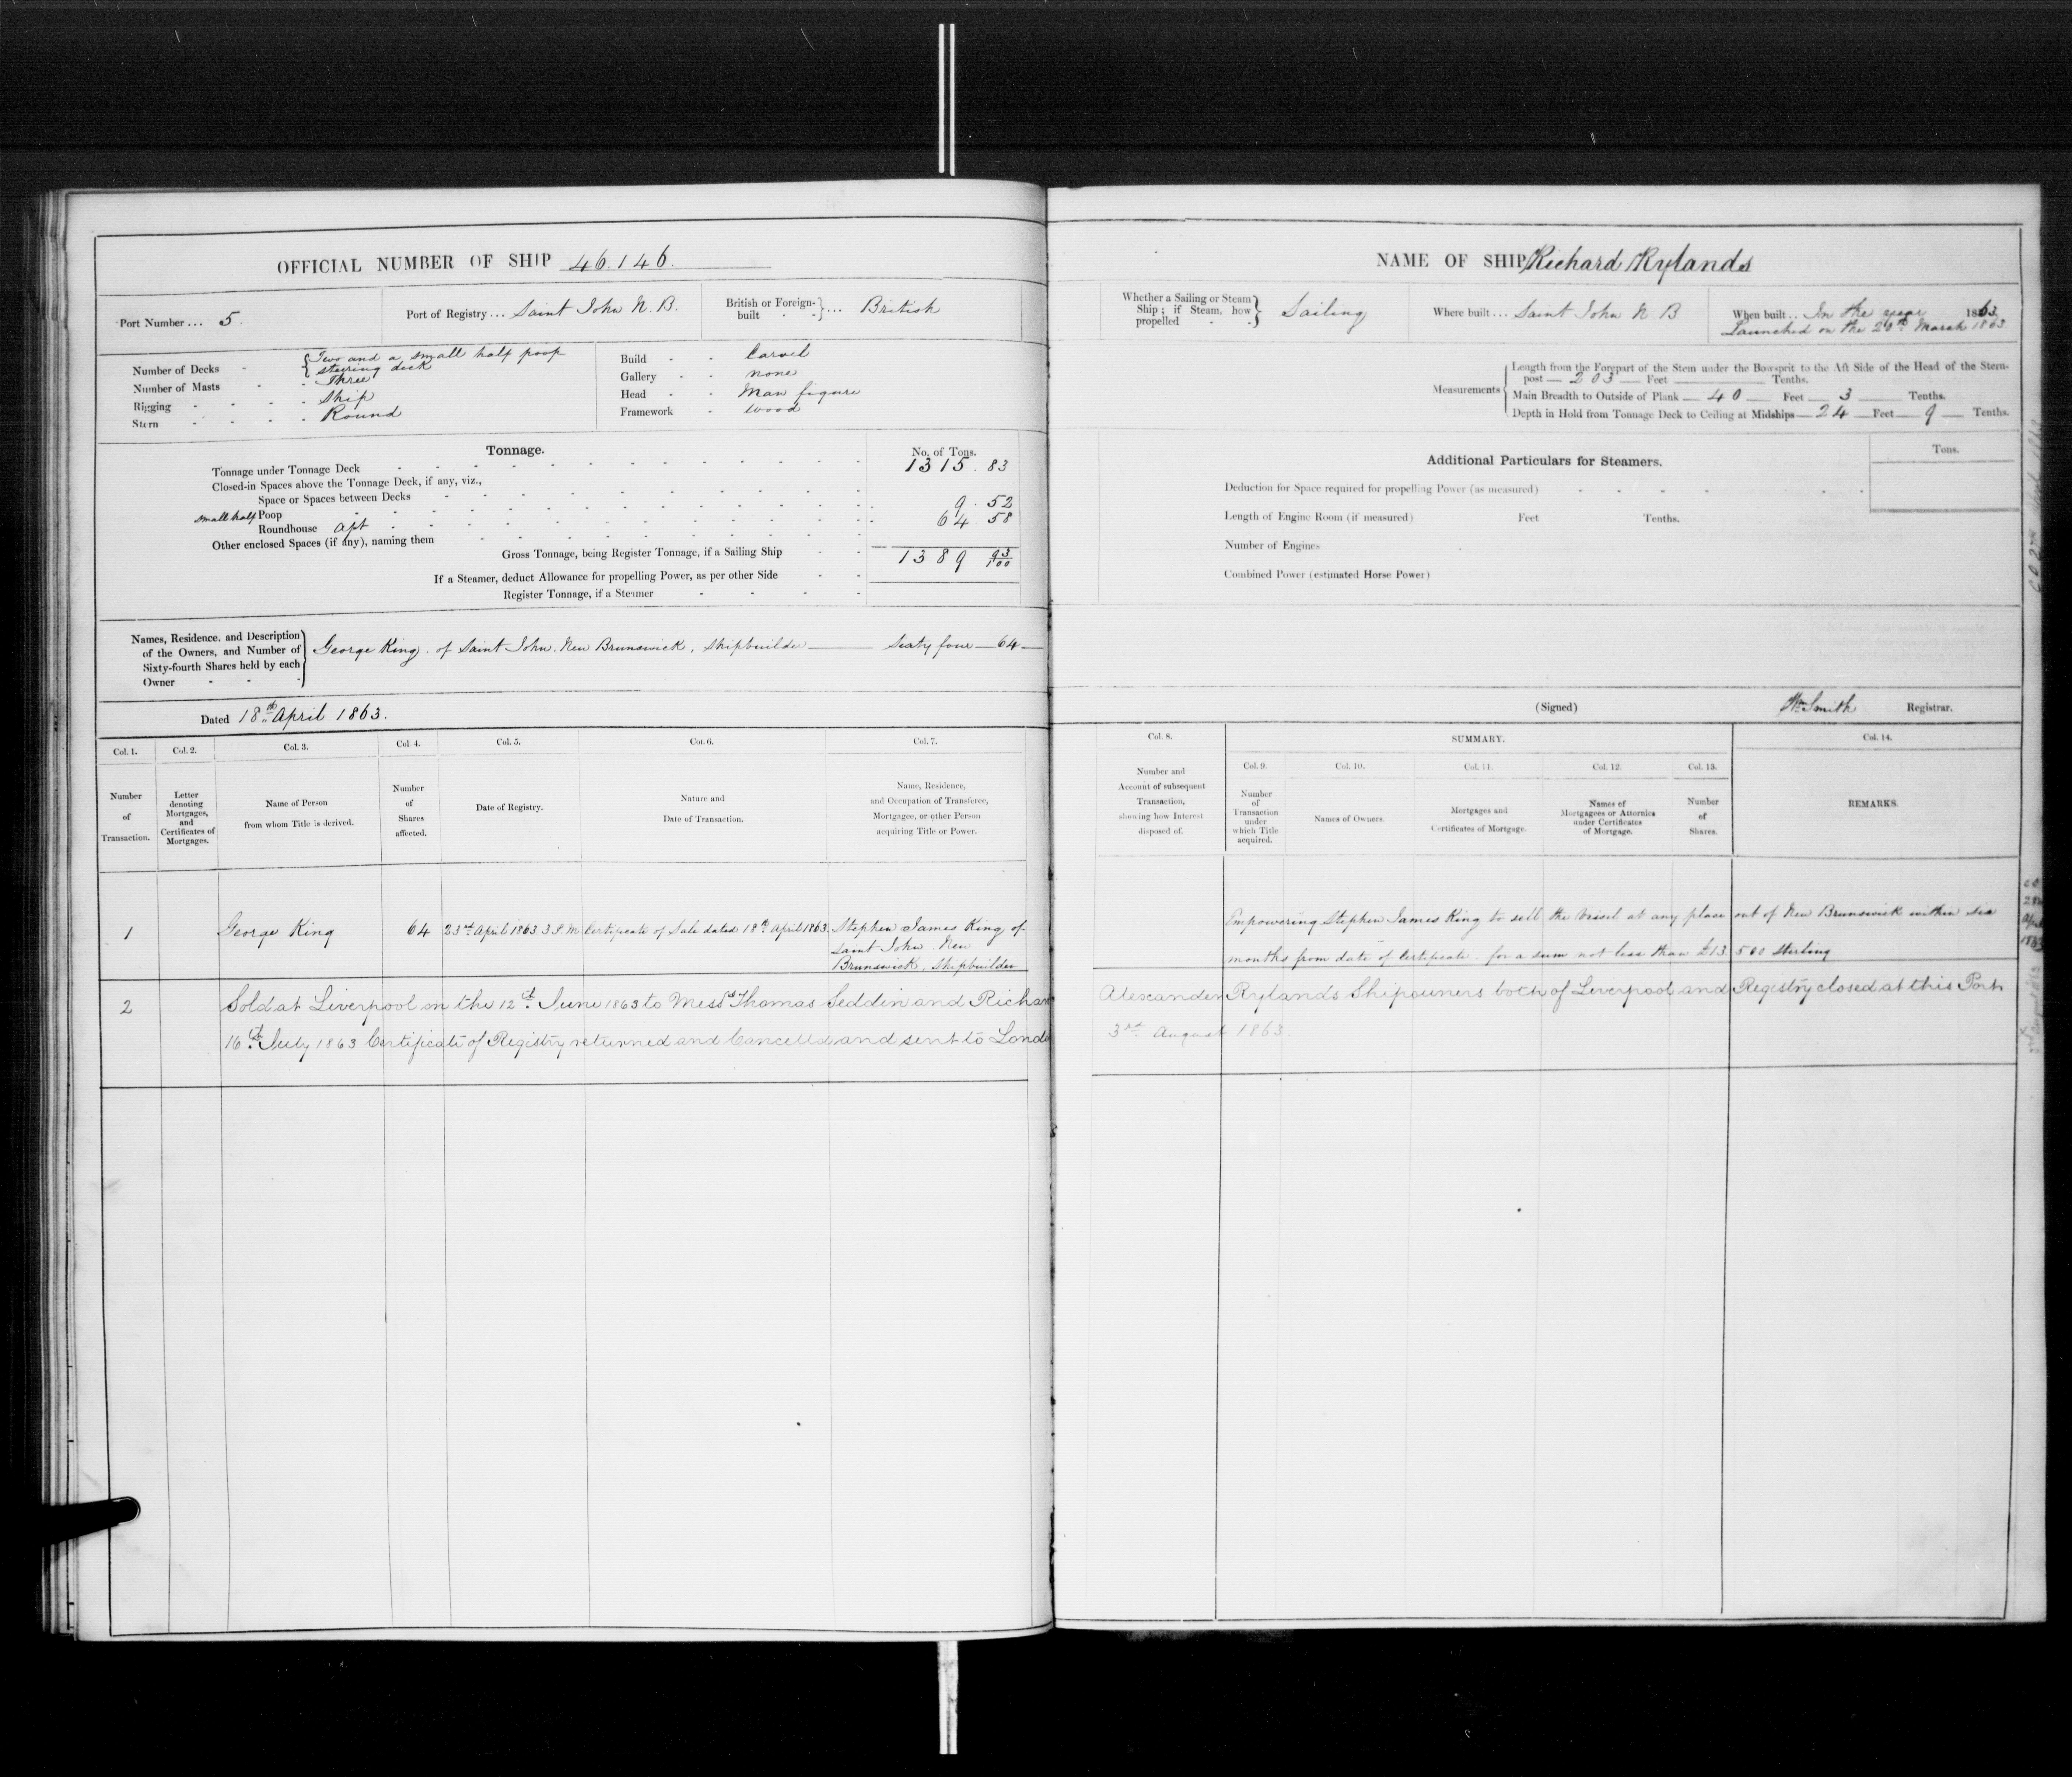 OFFICIAL NUMBER OF SHIP 46.146.
Port Number ... 5.
Port of Registry ... Saint John N. B.
British or Foreign-built } ... British
Number of Decks - { Two and a small half poop
steering deck
Number of Masts - - Three
Rigging - - - - Ship
Stern - - - - Round
Build - - Carvel
Gallery - - none
Head - - Man figure
Framework - wood
Tonnage.
No. of Tons.
Tonnage under Tonnage Deck 1315.83
Closed-in Spaces above the Tonnage Deck, if any, viz.,
Space or Spaces between Decks
small half Poop 9.52
Roundhouse Apt 64.58
Other enclosed Spaces (if any), naming them
Gross Tonnage, being Register Tonnage, if a Sailing Ship 1389 93/100
If a Steamer, deduct Allowance for propelling Power, as per other Side
Register Tonnage, if a Steamer
Names, Residence, and Description
of the Owners, and Number of
Sixty-fourth Shares held by each
Owner
George King. of Saint John. New Brunswick, Shipbuilder — Sixty four — 64 —
Dated 18th April 1863.
Col. 1. Col. 2. Col. 3. Col. 4. Col. 5. Col. 6. Col. 7.
Number of Transaction.
Letter denoting Mortgages, and Certificates of Mortgages.
Name of Person from whom Title is derived.
Number of Shares affected.
Date of Registry.
Nature and Date of Transaction.
Name, Residence, and Occupation of Transferee, Mortgagee, or other Person acquiring Title or Power.
1 George King 64 23rd April 1863 3 P.M. Certificate of Sale dated 18th April 1863. Stephen James King of
Saint John New
Brunswick, Shipbuilder
2 Sold at Liverpool on the 12th June 1863 to Messrs Thomas Seddin and Richard
16th July 1863 Certificate of Registry returned and Cancelld and sent to London
NAME OF SHIP Richard Rylands
Whether a Sailing or Steam Ship; if Steam, how propelled } Sailing
Where built ... Saint John N. B
When built .. In the year 1863
Launched on the 20th March 1863.
Measurements
Length from the Forepart of the Stem under the Bowsprit to the Aft Side of the Head of the Stern-
post — 203 — Feet — Tenths.
Main Breadth to Outside of Plank — 40 — Feet — 3 — Tenths.
Depth in Hold from Tonnage Deck to Ceiling at Midships — 24 — Feet — 9 — Tenths.
Additional Particulars for Steamers.
Tons.
Deduction for Space required for propelling Power (as measured)
Length of Engine Room (if measured) Feet Tenths.
Number of Engines
Combined Power (estimated Horse Power)
(Signed) Wm Smith Registrar.
Col. 8. SUMMARY. Col. 14.
Col. 9. Col. 10. Col. 11. Col. 12. Col. 13.
Number and Account of subsequent Transaction, showing how Interest disposed of.
Number of Transaction under which Title acquired.
Names of Owners.
Mortgages and Certificates of Mortgage.
Names of Mortgagees or Attornies under Certificates of Mortgage.
Number of Shares.
REMARKS.
Empowering Stephen James King to sell the Vessel at any place out of New Brunswick within six
months from date of Certificate. for a sum not less than £13500 Sterling
Alexander Rylands Shipowners both of Liverpool and Registry closed at this Port
3rd August 1863.